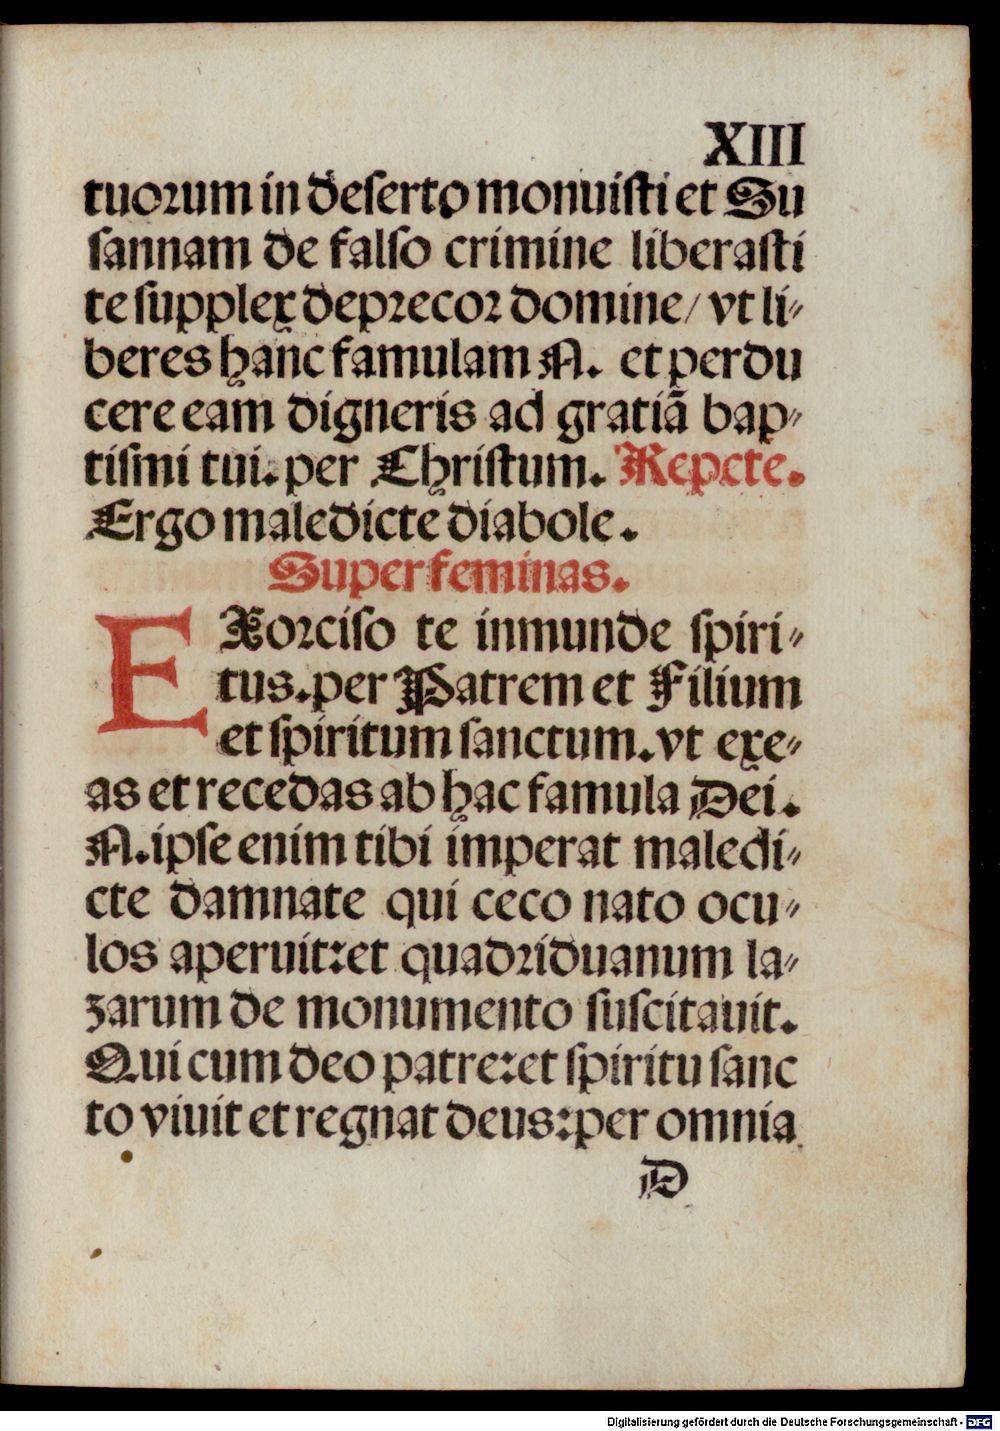 XIII
tuorum in deserto monuisti et Su
sannam de falso crimine liberasti
te supplex deprecor domine/ vt li-
beres hanc famulam N. et perdu
cere eam digneris ad gratiã bap-
tismi tui. per Christum. Repete.
Ergo maledicte diabole.
Super feminas.
EXorciso te inmunde spiri-
tus. per Patrem et Filium
et spiritum sanctum. vt exe-
as et recedas ab hac famula Dei.
N. ipse enim tibi imperat maledi-
cte damnate qui ceco nato ocu-
los aperuit: et quadriduanum la-
zarum de monumento suscitauit.
Qui cum deo patre: et spiritu sanc
to viuit et regnat deus: per omnia
D
Digitalisierung gefördert durch die Deutsche Forschungsgemeinschaft - DFG